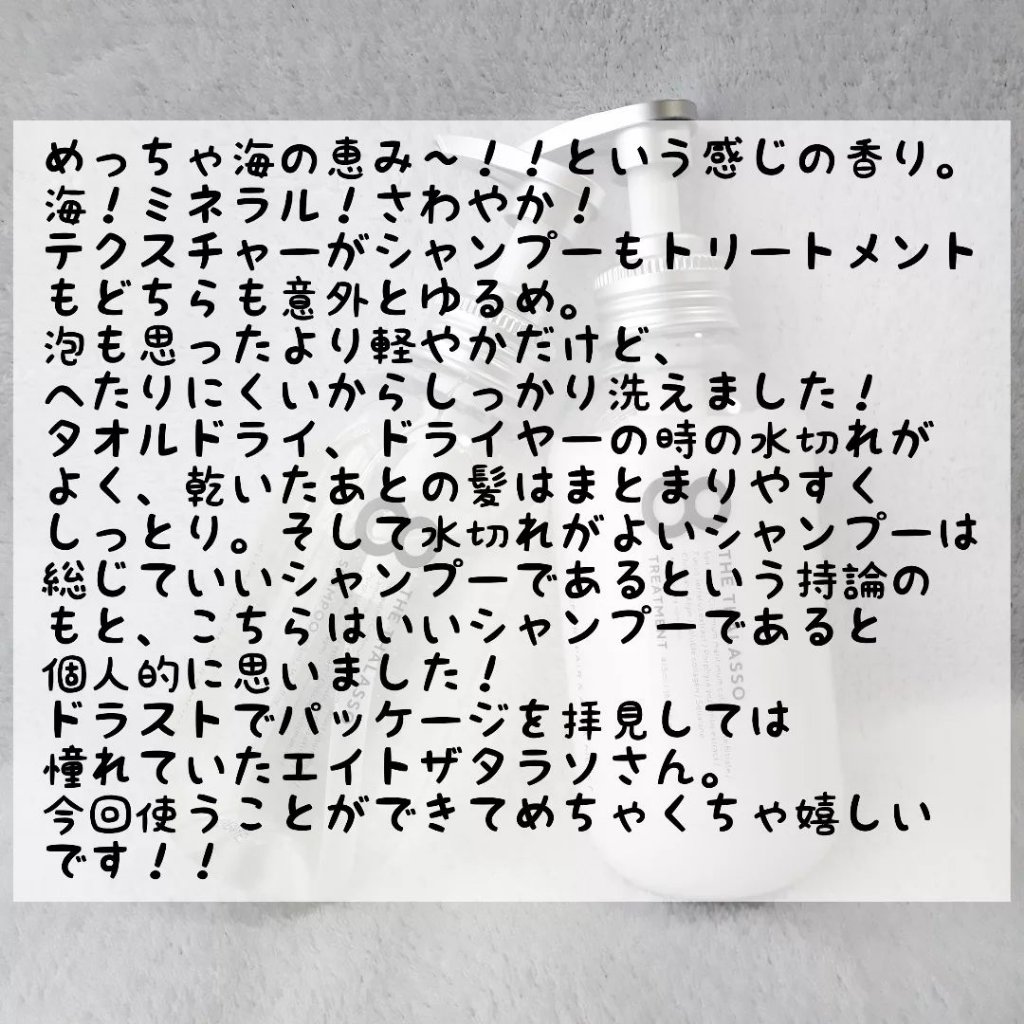 めっちゃ海の恵み〜！！という感じの香り。
海！ミネラル！さわやか！
テクスチャーがシャンプーもトリートメント
もどちらも意外とゆるめ。
泡も思ったより軽やかだけど、
へたりにくいからしっかり洗えました！
タオルドライ、ドライヤーの時の水切れが
よく、乾いたあとの髪はまとまりやすく
しっとり。そして水切れがよいシャンプーは
総じていいシャンプーであるという持論の
もと、こちらはいいシャンプーであると
個人的に思いました！
ドラストでパッケージを拝見しては
憧れていたエイトザタラソさん。
今回使うことができてめちゃくちゃ嬉しい
です！！
8
THE THALASSO
SHAMPOO
8
THE THALASSO
TREATMENT